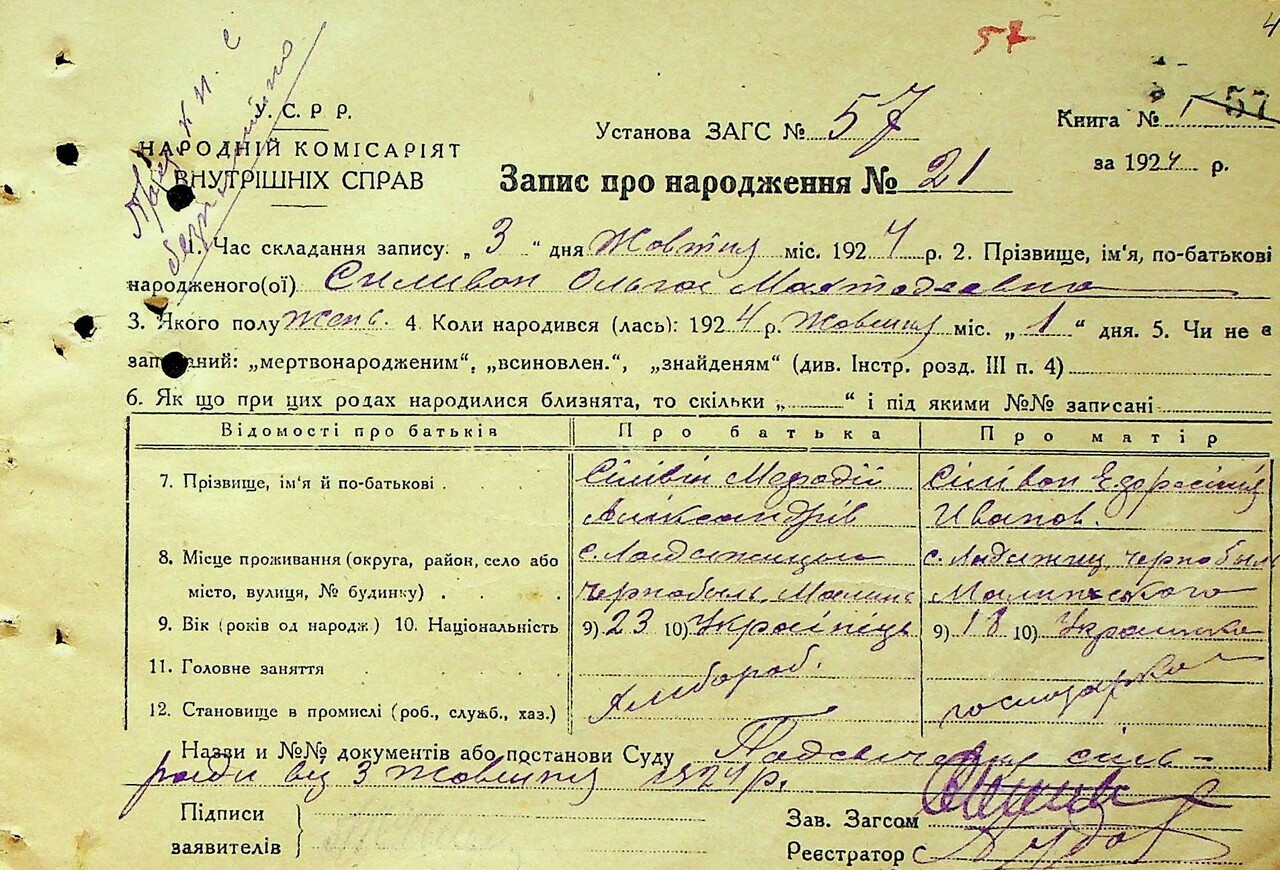 57
4
У. С. Р Р.
НАРОДНІЙ КОМІСАРІЯТ
ВНУТРІШНІХ СПРАВ
Установа ЗАГС № 57
Книга № 57
за 1924 р.
Запис про народження № 21
Час складання запису. „ 3 “ дня Жовтня міс. 1924 р. 2. Прізвище, ім'я, по-батькові
народженого(ої) Силивон Ольга
3. Якого полу Жен. 4. Коли народився (лась): 1924 р. Жовтня міс. „ 1 “ дня. 5. Чи не є
записаний: „мертвонародженим“, „всиновлен.“, „знайденям“ (див. Інстр. розд. III п. 4)
6. Як що при цих родах народилися близнята, то скільки „ “ і під якими №№ записані
Відомості про батьків Про батька Про матір
7. Прізвище, ім'я й по-батькові Сілівін Мефодій Сілівон
Александрів Иванов.
8. Місце проживання (округа, район, село або с. с. Ладижич Чернобыль
місто, вулиця, № будинку) Чернобыль, Малинс Малинського
9. Вік (років од народж.) 10. Національність 9) 23 10) Українець 9) 18 10) Українка
11. Головне заняття
12. Становище в промислі (роб., служб., хаз.) Хлібороб. господарка
Назви и №№ документів або постанови Суду сіль-
ради від 3 Жовтня 1924 р.
Підписи
заявителів
Зав. Загсом
Реєстратор